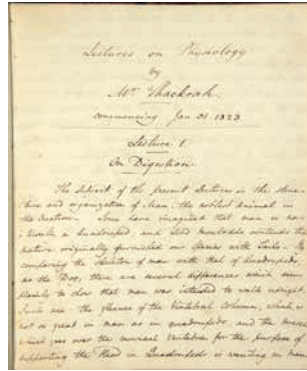 Lectures on Physiology
by
Mr Thackrah
commencing Jan 31 1823
Lecture 1
On Digestion
The subject of the present Lectures is the struc
ture and organization of Man, the noblest animal in
the Creation. Some have imagined that man is na-
turally a Quadruped, and Lord Monboddo contends that
nature originally furnished our Species with Tails. In
comparing the skeleton of man with that of Quadrupeds
as the Dog, there are several differences which seem
plainly to show that man was intended to walk upright.
Such are the flexure of the Vertebral Column, which is
not so great in man as in quadrupeds, and the
which goes over the cervical Vertebrae for the purpose of
supporting the Head in Quadrupeds is wanting in man